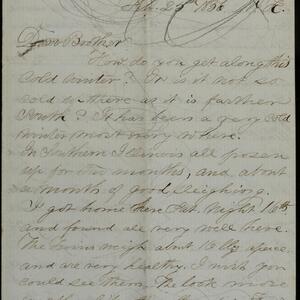 Dear Brother
How do you get along this
cold winter? Or is it not so
cold up there as it is farther
South? It has been a very cold
winter most every where.
In Southern Illinois all frozen
up for two months, and about
a month of good sleighing.
I got home here Sat. Night 16th
and found all very well here.
The twins weigh about 16 lbs apiece
and are very healthy. I wish you
could see them. The look more